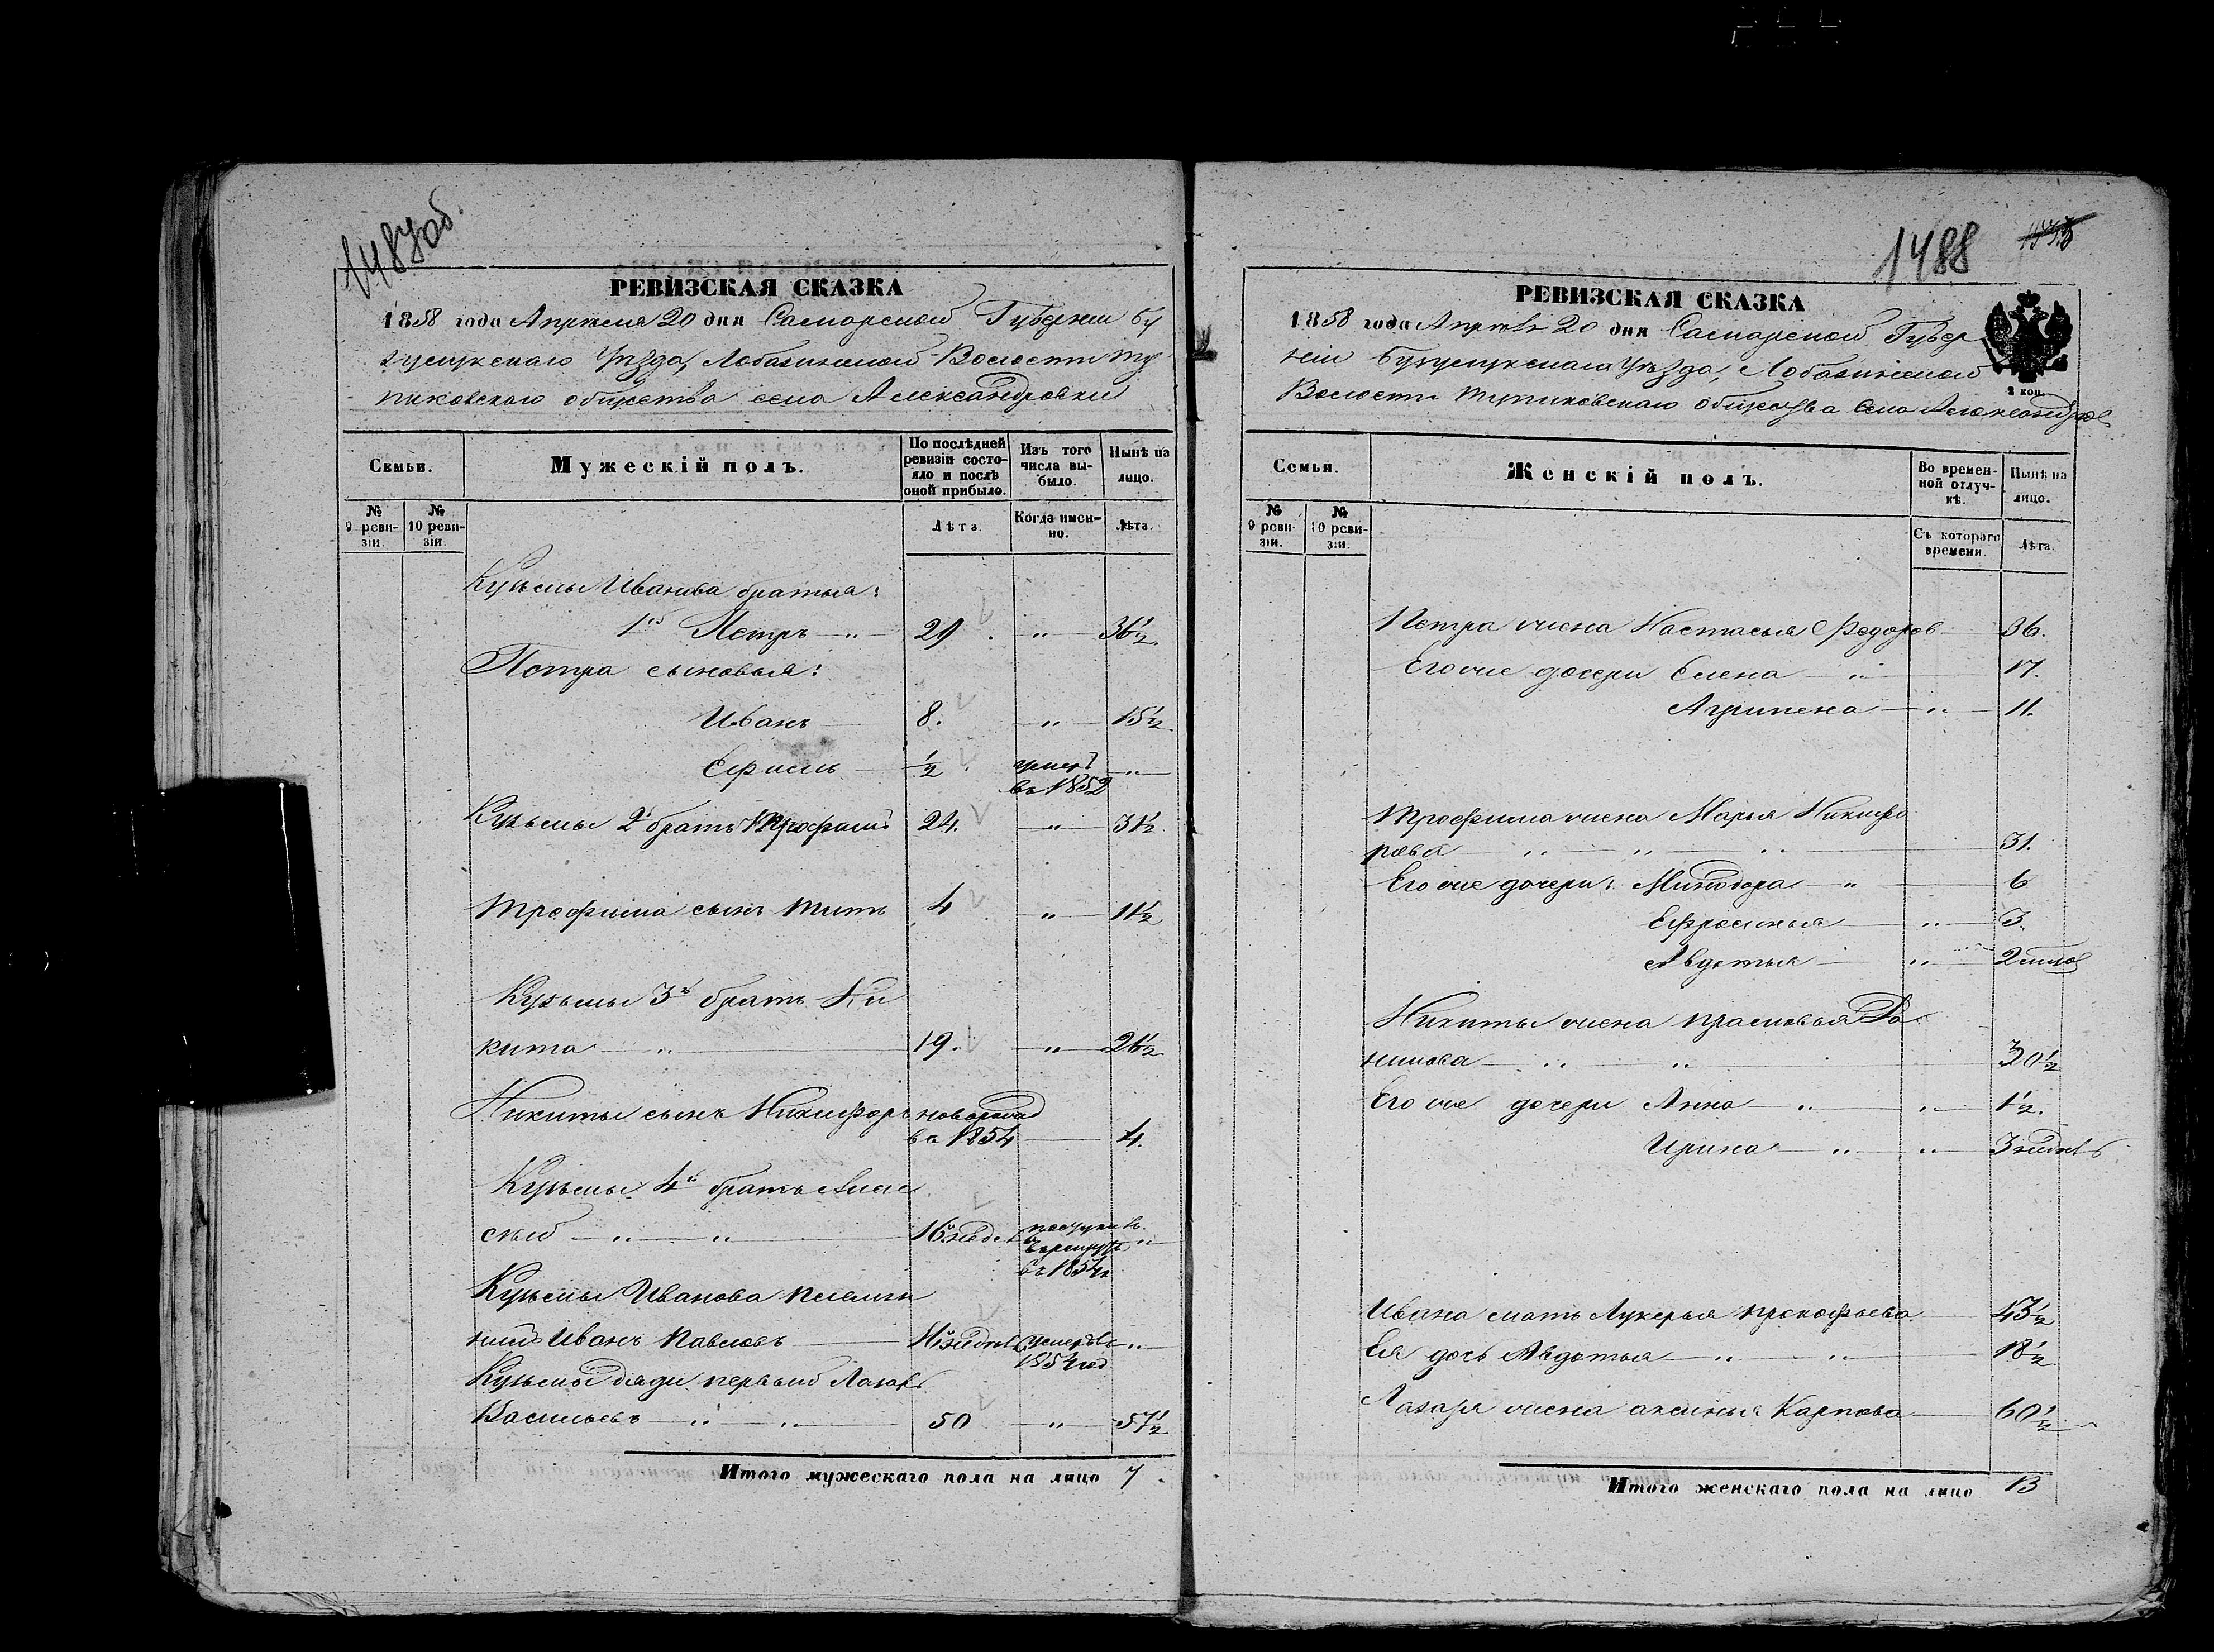 1487об.
РЕВИЗСКАЯ СКАЗКА
1858 года Апреля 20 дня Самарской Губернии Бу
гуруслускаго Уѣзда, Лобазинской Волости Ту
пиковскаго общества села Александровки
Семьи.
Мужескій полъ.
По послѣдней ревизіи состояло и послѣ оной прибыло.
Изъ того числа выбыло.
Нынѣ на лицо.
№ 9 ревизіи.
№ 10 ревизіи.
Лѣта.
Когда именно.
Лѣта.
Кузьмы Иванова братья:
1й Петръ — " — 29. " 36½
Петра сыновья:
Иванъ 8. " 15½
Ефимъ ½ умеръ въ 1852 "
Кузьмы 2й братъ Трофимъ 24. " 31½
Трофима сынъ Титъ 4 " 11½
Кузьмы 3й братъ Ни
кита " 19. " 26½
Никиты сынъ Никифоръ новорожд
въ 1854 4.
Кузьмы 4й братъ Алек
сѣй " " 16 въ 1854
Кузьмы Иванова племян
никъ Иванъ Павловъ умеръ въ "
1854 год
Кузьмы дяди первый Лазарь
Васильевъ " " 50 " 57½
Итого мужескаго пола на лицо 7.
1488
РЕВИЗСКАЯ СКАЗКА
1858 года Апреля 20 дня Самарской Губер
ніи Бугурусланскаго Уѣзда, Лобазинской
Волости Тупиковскаго общества села Александров
2 коп.
Семьи.
Женскій полъ.
Во временной отлучкѣ.
Нынѣ на лицо.
№ 9 ревизіи.
№ 10 ревизіи.
Съ котораго времени.
Лѣта.
Петра жена Настасья Федоров 36.
Его же дочери Елена " 17.
Агрипена " 11.
Трофима жена Марья Никифо
рова " " " 31.
Его же дочери: Минодора " 6
Ефросинья " 3.
Авдотья " 2
Никиты жена Прасковья Да
нилова " " 30½
Его же дочери Анна " " 1½.
Ирина " " 3 недель
Ивана мать Лукерья Прокофьева 43½
Ея дочь Авдотья " " 18½
Лазаря жена Аксинья Карпова 60½
Итого женскаго пола на лицо 13